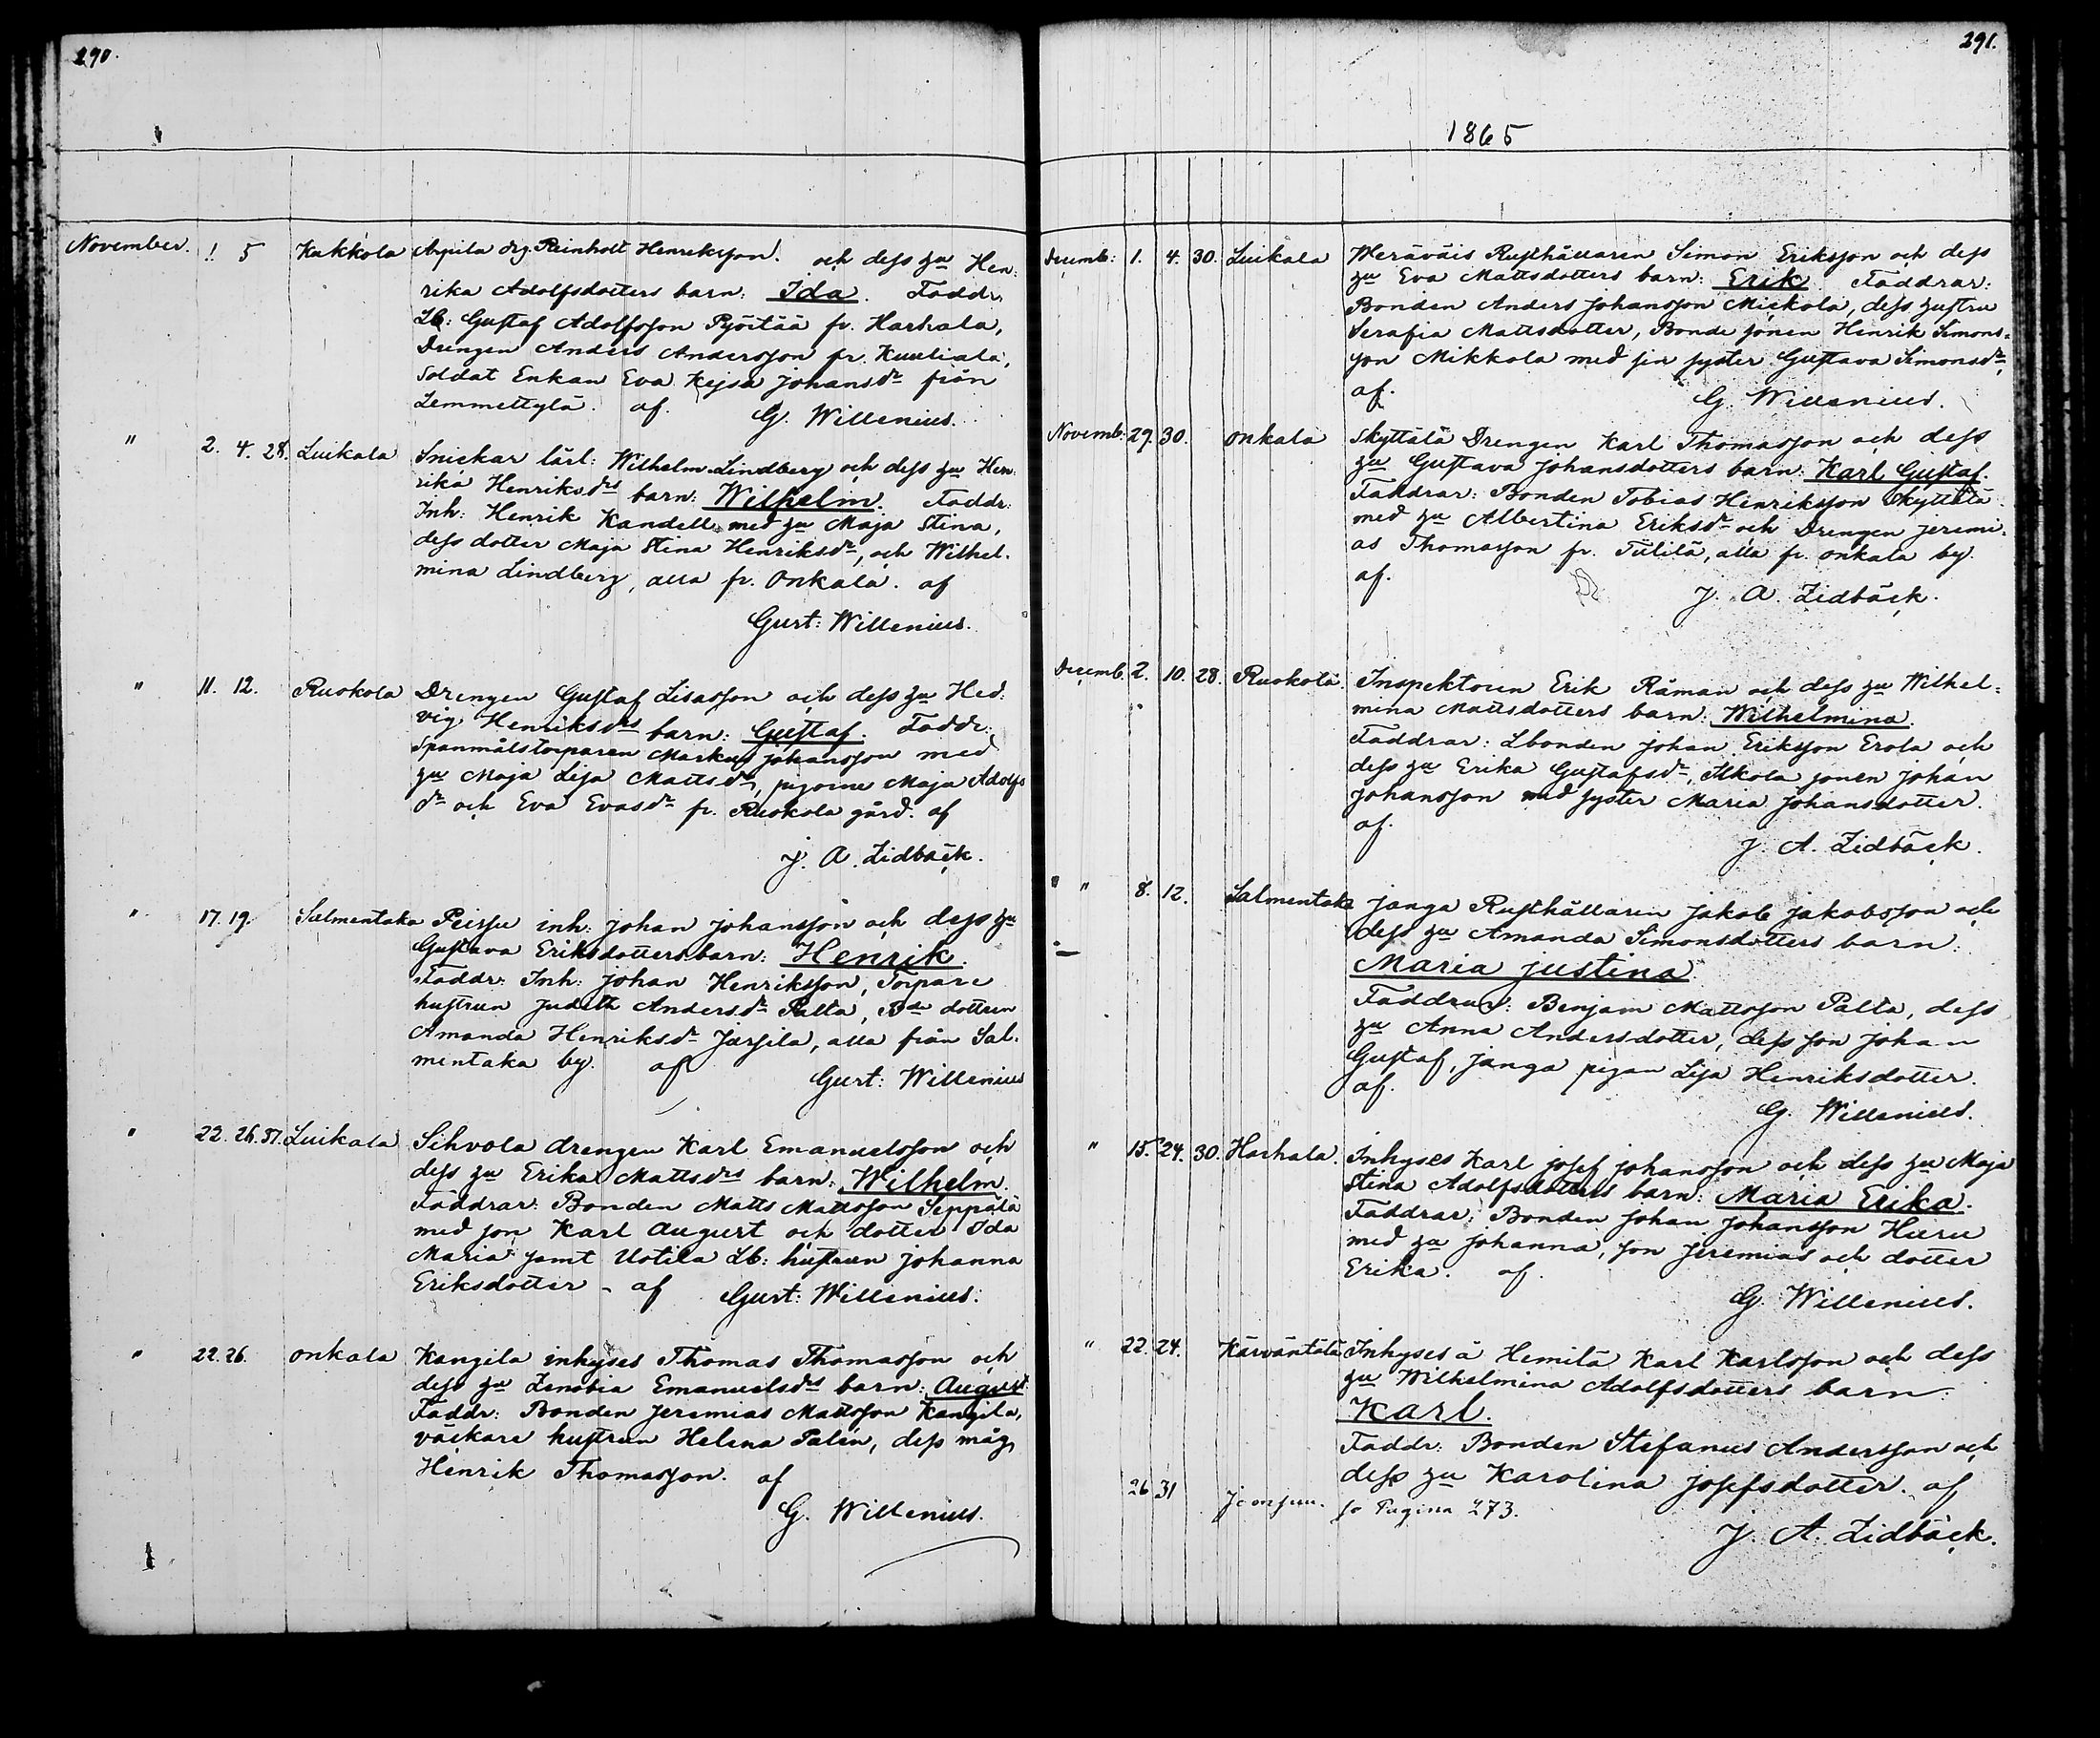 290.
November. 1. 5 Kakkola Arpila drg. Reinholt Henriksson! och dess hu Hen:
rika Adolfsdotters barn: Ida. Faddr:
Lb: Gustaf Adolfsson Pjöitää fr. Harhala,
Drengen Anders Andersson fr. Kuuliala,
Soldat Enkan Eva Kejsa Johansdr från
Lemmettylä. af. G. Willenius.
" 2. 4. 28. Luikala Snickar lärl: Wilhelm Lindberg och dess hu Hen
rika Henriksdrs barn: Wilhelm. Faddr:
Inh: Henrik Kandell med hu Maja Stina,
dess dotter Maja Stina Henriksdr, och Wilhel.
mina Lindberg, alla fr. Onkala. af
Gust: Willenius.
" 11. 12. Ruokola Drengen Gustaf Lisasson och dess hu Hed:
vig Henriksdrs barn: Gustaf. Faddr:
Spanmålstorparen Markus Johansson med
hu Maja Lisa Mattsdr, pigorne Maja Adolfs
dr och Eva Evasdr fr. Ruokola gård. af
J. A. Lidbäck.
" 17. 19. Salmentaka Peissu inh: Johan Johansson och dess hu
Gustava Eriksdotters barn: Henrik.
Faddr: Inh: Johan Henriksson, Torpare
hustrun Judith Andersdr Palta, Bde dottren
Amanda Henriksdr Jussila, alla från Sal.
mentaka by. af Gust: Willenius
" 22. 26. 37. Luikala Sihvola drengen Karl Emanuelsson och
dess hu Erika Mattsdrs barn: Wilhelm.
Faddrar: Bonden Matts Mattsson Seppälä
med son Karl August och dotter Ida
Maria samt Uotila Lb: hustrun Johanna
Eriksdotter - af Gust: Willenius.
" 22. 26. Onkala Kangila inhyses Thomas Thomasson och
dess hu Zenobia Emanuelsdrs barn: August
Faddr: Bonden Jeremias Mattsson Kangila,
väckare hustrun Helena Palén, dess måg
Henrik Thomasson. af
G. Willenius.
291.
1865
Decemb: 1. 4. 30. Luikala Meräväis Rusthållaren Simon Eriksson och dess
hu Eva Mattsdotters barn: Erik Faddrar:
Bonden Anders Johansson Mickola, dess hustru
Serafia Mattsdotter, Bonde sonen Henrik Simons=
son Mikkola med sin syster Gustava Simonsdr,
af. G. Willenius.
Novemb: 29. 30. Onkala Skyttälä Drengen Karl Thomasson och dess
hu Gustava Johansdotters barn: Karl Gustaf.
Faddrar: Bonden Tobias Henriksson Skyttälä
med hu Albertina Eriksdr och Drengen Jeremi.
as Thomasson fr. Tulilä, alla fr. Onkala by.
af.
J. A. Lidbäck.
Decemb. 2. 10. 28. Ruokola. Inspektoren Erik Råman och dess hu Wilhel=
mina Mattsdotters barn: Wilhelmina.
Faddrar: Lbonden Johan Eriksson Erola och
dess hu Erika Gustafsdr, Alkola sonen Johan
Johansson med syster Maria Johansdotter.
af.
J. A. Lidbäck.
" " 8. 12. Salmentaka Janga Rusthållaren Jakob Jakobsson och
dess hu Amanda Simonsdotters barn:
Maria Justina.
Faddrar: Benjam Mattsson Palta, dess
hu Anna Andersdotter, dess son Johan
Gustaf, Janga pigan Lisa Henriksdotter.
af.
G. Willenius.
" 15. 24. 30. Harhala. Inhyses Karl Josef Johansson och dess hu Maja
Stina Adolfsdotters barn: Maria Erika.
Faddrar: Bonden Johan Johansson Huru
med hu Johanna, son Jeremias och dotter
Erika. af.
G. Willenius.
" 22. 24. Kärväntälä Inhyses å Hemilä Karl Karlsson och dess
hu Wilhelmina Adolfsdotters barn:
Karl.
Faddr: Bonden Stefanus Andersson och
dess hu Karolina Josefsdotter. af
26 31 se Pagina 273.
J. A. Lidbäck.